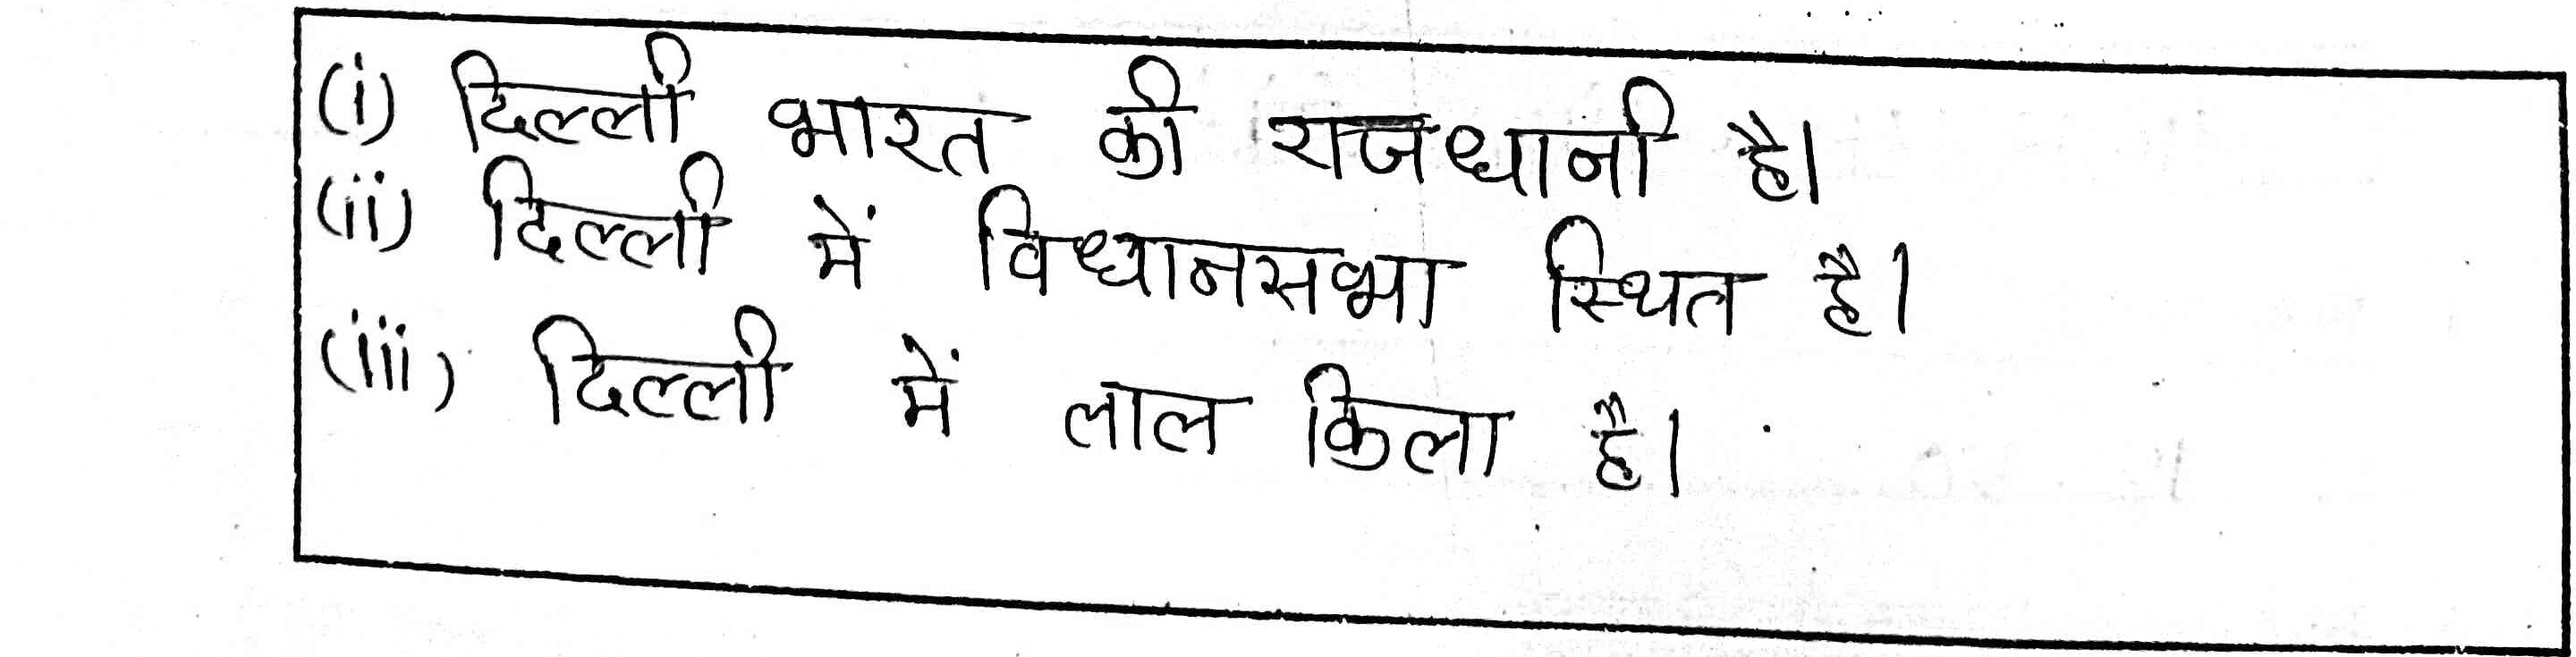 (i) दिल्ली भारत की राजधानी है।
(ii) दिल्ली में विधानसभा स्थित है।
(iii) दिल्ली में लाल किला है।